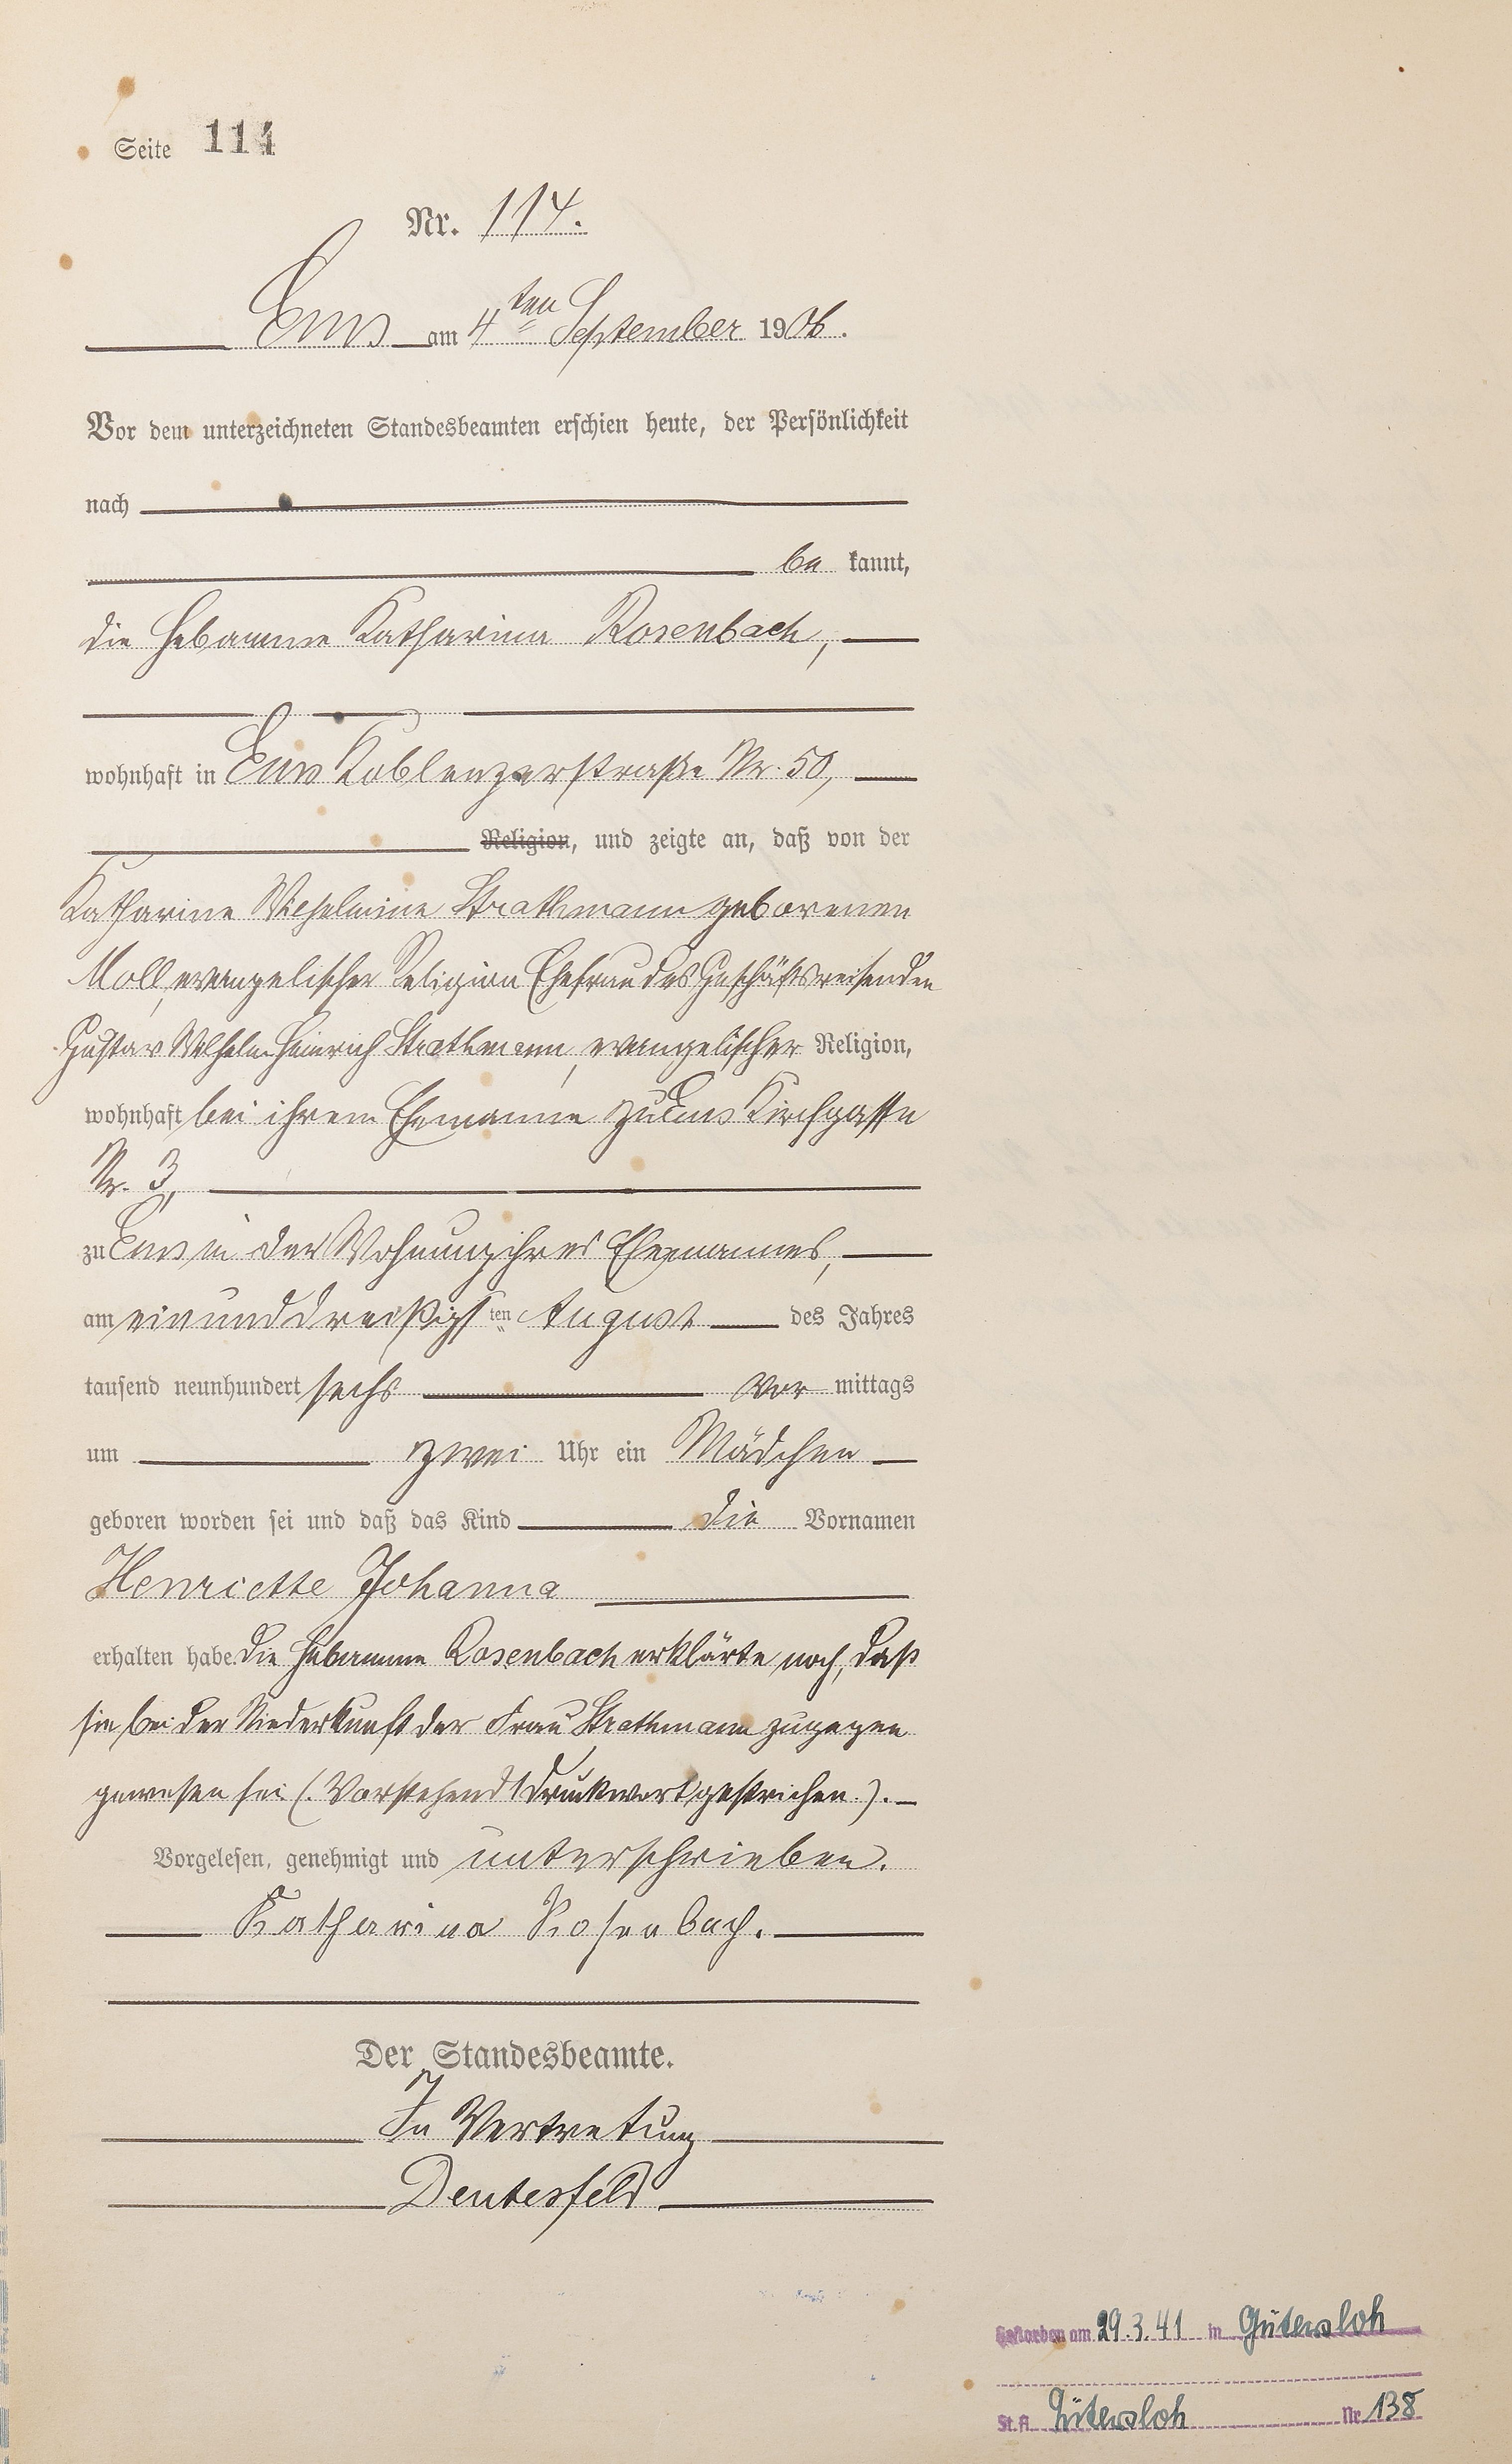 Seite 114
Nr. 114.
Ems am 4ten September 1906.
Vor dem unterzeichneten Standesbeamten erschien heute, der Persönlichkeit
nach
be kannt,
die Hebamme Katharina Rosenbach,
wohnhaft in Ems Koblenzerstraße Nr. 50,
Religion, und zeigte an, daß von der
Katharine Wilhelmine Strathmann geborenen
Moll, evangelischer Religion Ehefrau des Geschäftsreisenden
Gustav Wilhelm Heinrich Strathmann, evangelischer Religion,
wohnhaft bei ihrem Ehemanne zu Ems Kirchgasse
Nr. 3,
zu Ems in der Wohnung ihres Ehemannes,
am einunddreißigsten August des Jahres
tausend neunhundert sechs vor mittags
um zwei Uhr ein Mädchen
geboren worden sei und daß das Kind die Vornamen
Henriette Johanna
erhalten habe. Die Hebamme Rosenbach erklärte noch, daß
sie bei der Niederkunft der Frau Strathmann zugegen
gewesen sei (. Vorstehend 1 Druckwort gestrichen.).
Vorgelesen, genehmigt und unterschrieben.
Katharina Rosenbach.
Der Standesbeamte.
In Vertretung
Deutesfeld
Gestorben am 29.3.41 in Gütersloh
St.A. Gütersloh Nr 138